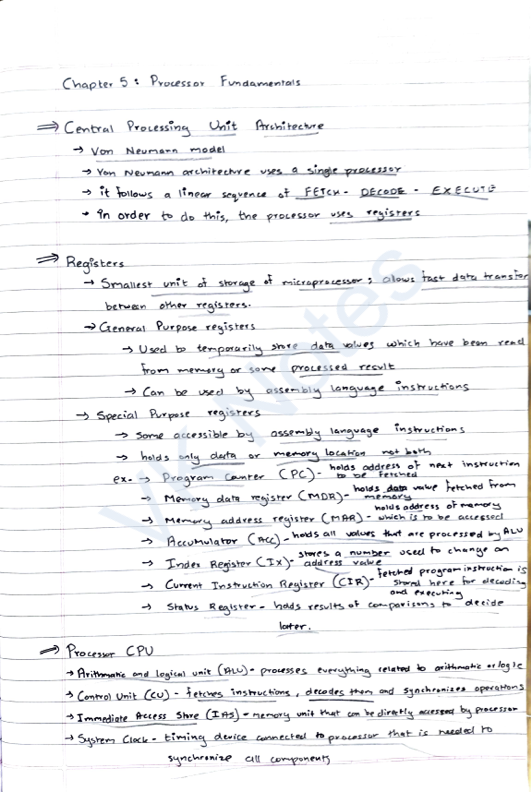 Chapter 5 : Processor Fundamentals
⇒ Central Processing Unit Architecture
→ Von Neumann model
→ Von Neumann architecture uses a single processor
→ it follows a linear sequence of FETCH - DECODE - EXECUTE
→ in order to do this, the processor uses registers
⇒ Registers
→ Smallest unit of storage of microprocessor ; allows fast data transfer
between other registers.
→ General Purpose registers
→ Used to temporarily store data values which have been read
from memory or some processed result
→ Can be used by assembly language instructions
→ Special Purpose registers
→ Some accessible by assembly language instructions
→ holds only data or memory location not both
ex. → Program Counter (PC) - holds address of next instruction
to be fetched
→ Memory data register (MDR) - holds data value fetched from
memory
→ Memory address register (MAR) - holds address of memory
which is to be accessed
→ Accumulator (ACC) - holds all values that are processed by ALU
→ Index Register (IX) - stores a number used to change an
address value
→ Current Instruction Register (CIR) - fetched program instruction is
stored here for decoding
and executing
→ Status Register - holds results of comparisons to decide
later.
⇒ Processor CPU
→ Arithmatic and logical unit (ALU) - processes everything related to arithmatic or logic
→ Control Unit (CU) - fetches instructions, decodes them and synchronizes operations
→ Immediate Access Store (IAS) - memory unit that can be directly accessed by processor
→ System Clock - timing device connected to processor that is needed to
synchronize all components
VK Notes